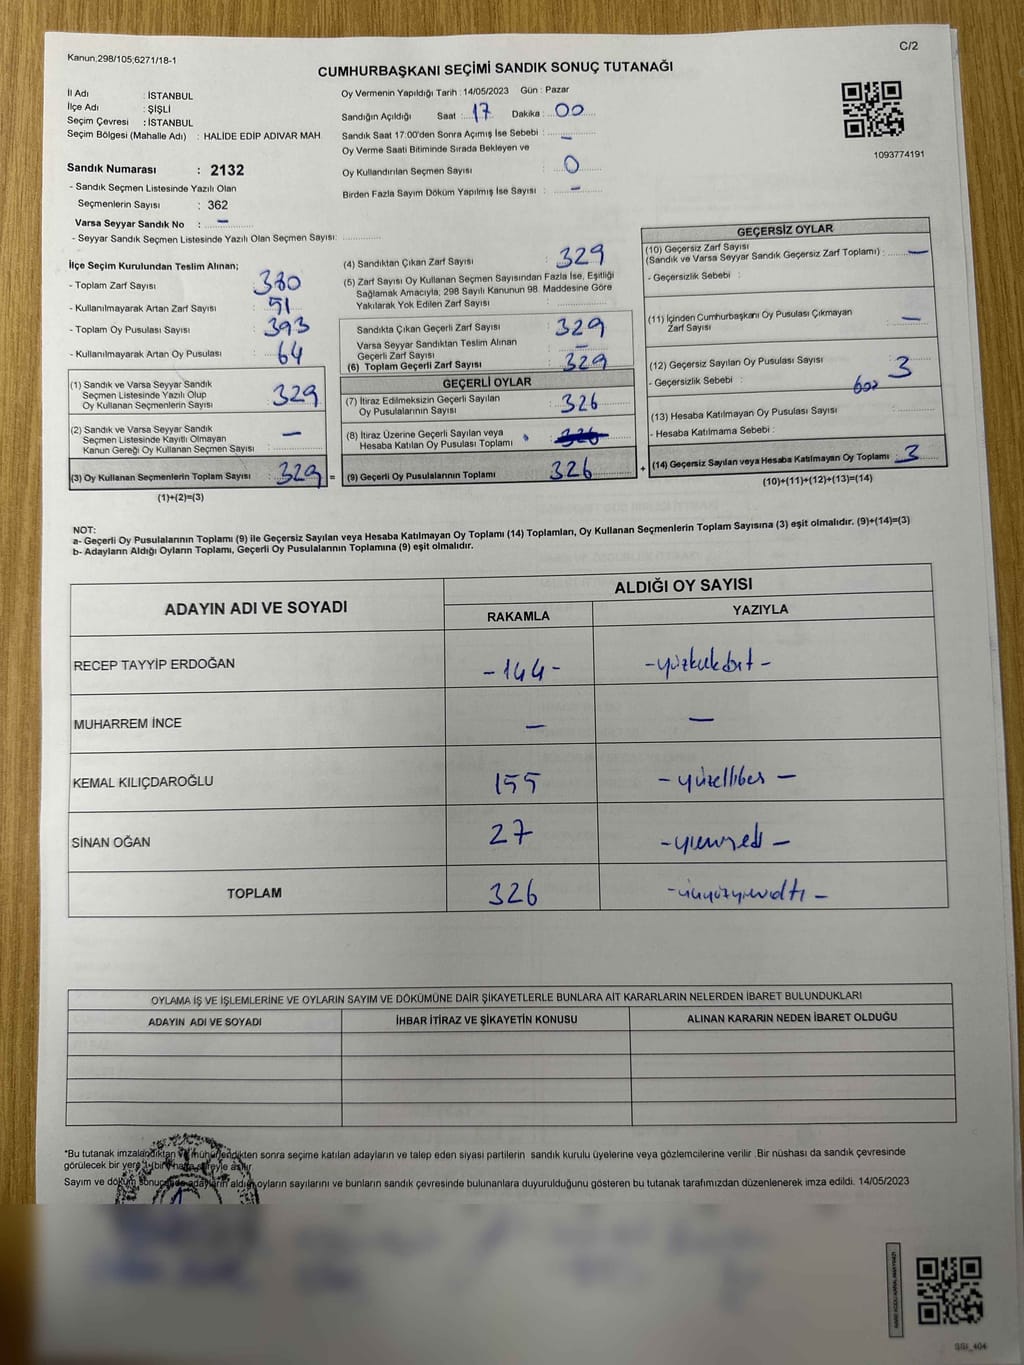 Kanun,298/105,6271/18-1
C/2
CUMHURBAŞKANI SEÇİMİ SANDIK SONUÇ TUTANAĞI
İl Adı : İSTANBUL
İlçe Adı : ŞİŞLİ
Seçim Çevresi : İSTANBUL
Seçim Bölgesi (Mahalle Adı) : HALİDE EDİP ADIVAR MAH.
Oy Vermenin Yapıldığı Tarih : 14/05/2023 Gün : Pazar
Sandığın Açıldığı Saat : 17 Dakika : 00
Sandık Saat 17:00'den Sonra Açımış İse Sebebi : –
Oy Verme Saati Bitiminde Sırada Bekleyen ve
Oy Kullandırılan Seçmen Sayısı : 0
Birden Fazla Sayım Döküm Yapılmış İse Sayısı : –
1093774191
Sandık Numarası : 2132
- Sandık Seçmen Listesinde Yazılı Olan
Seçmenlerin Sayısı : 362
Varsa Seyyar Sandık No : –
- Seyyar Sandık Seçmen Listesinde Yazılı Olan Seçmen Sayısı:
İlçe Seçim Kurulundan Teslim Alınan;
- Toplam Zarf Sayısı : 380
- Kullanılmayarak Artan Zarf Sayısı : 51
- Toplam Oy Pusulası Sayısı : 393
- Kullanılmayarak Artan Oy Pusulası : 64
(1) Sandık ve Varsa Seyyar Sandık
Seçmen Listesinde Yazılı Olup
Oy Kullanan Seçmenlerin Sayısı : 329
(2) Sandık ve Varsa Seyyar Sandık
Seçmen Listesinde Kayıtlı Olmayan
Kanun Gereği Oy Kullanan Seçmen Sayısı : –
(3) Oy Kullanan Seçmenlerin Toplam Sayısı : 329 =
(1)+(2)=(3)
(4) Sandıktan Çıkan Zarf Sayısı : 329
(5) Zarf Sayısı Oy Kullanan Seçmen Sayısından Fazla İse, Eşitliği
Sağlamak Amacıyla, 298 Sayılı Kanunun 98. Maddesine Göre
Yakılarak Yok Edilen Zarf Sayısı :
Sandıkta Çıkan Geçerli Zarf Sayısı : 329
Varsa Seyyar Sandıktan Teslim Alınan
Geçerli Zarf Sayısı : –
(6) Toplam Geçerli Zarf Sayısı : 329
GEÇERLİ OYLAR
(7) İtiraz Edilmeksizin Geçerli Sayılan
Oy Pusulalarının Sayısı : 326
(8) İtiraz Üzerine Geçerli Sayılan veya
Hesaba Katılan Oy Pusulası Toplamı :
(9) Geçerli Oy Pusulalarının Toplamı : 326 +
GEÇERSİZ OYLAR
(10) Geçersiz Zarf Sayısı
(Sandık ve Varsa Seyyar Sandık Geçersiz Zarf Toplamı) : –
- Geçersizlik Sebebi :
(11) İçinden Cumhurbaşkanı Oy Pusulası Çıkmayan
Zarf Sayısı : –
(12) Geçersiz Sayılan Oy Pusulası Sayısı : 3
- Geçersizlik Sebebi :
(13) Hesaba Katılmayan Oy Pusulası Sayısı :
- Hesaba Katılmama Sebebi :
(14) Geçersiz Sayılan veya Hesaba Katılmayan Oy Toplamı : 3
(10)+(11)+(12)+(13)=(14)
NOT:
a- Geçerli Oy Pusulalarının Toplamı (9) ile Geçersiz Sayılan veya Hesaba Katılmayan Oy Toplamı (14) Toplamları, Oy Kullanan Seçmenlerin Toplam Sayısına (3) eşit olmalıdır. (9)+(14)=(3)
b- Adayların Aldığı Oyların Toplamı, Geçerli Oy Pusulalarının Toplamına (9) eşit olmalıdır.
ADAYIN ADI VE SOYADI
ALDIĞI OY SAYISI
RAKAMLA YAZIYLA
RECEP TAYYİP ERDOĞAN -144- -yüzkırkdört-
MUHARREM İNCE – –
KEMAL KILIÇDAROĞLU 155 -yüzellibeş-
SİNAN OĞAN 27 -yirmiyedi-
TOPLAM 326 -üçyüzyirmialtı-
OYLAMA İŞ VE İŞLEMLERİNE VE OYLARIN SAYIM VE DÖKÜMÜNE DAİR ŞİKAYETLERLE BUNLARA AİT KARARLARIN NELERDEN İBARET BULUNDUKLARI
ADAYIN ADI VE SOYADI İHBAR İTİRAZ VE ŞİKAYETİN KONUSU ALINAN KARARIN NEDEN İBARET OLDUĞU
*Bu tutanak imzalandıktan ve mühürlendikten sonra seçime katılan adayların ve talep eden siyasi partilerin sandık kurulu üyelerine veya gözlemcilerine verilir .Bir nüshası da sandık çevresinde
görülecek bir yere 1 (bir) hafta süreyle asılır.
Sayım ve döküm sonucunda adayların aldığı oyların sayılarını ve bunların sandık çevresinde bulunanlara duyurulduğunu gösteren bu tutanak tarafımızdan düzenlenerek imza edildi. 14/05/2023